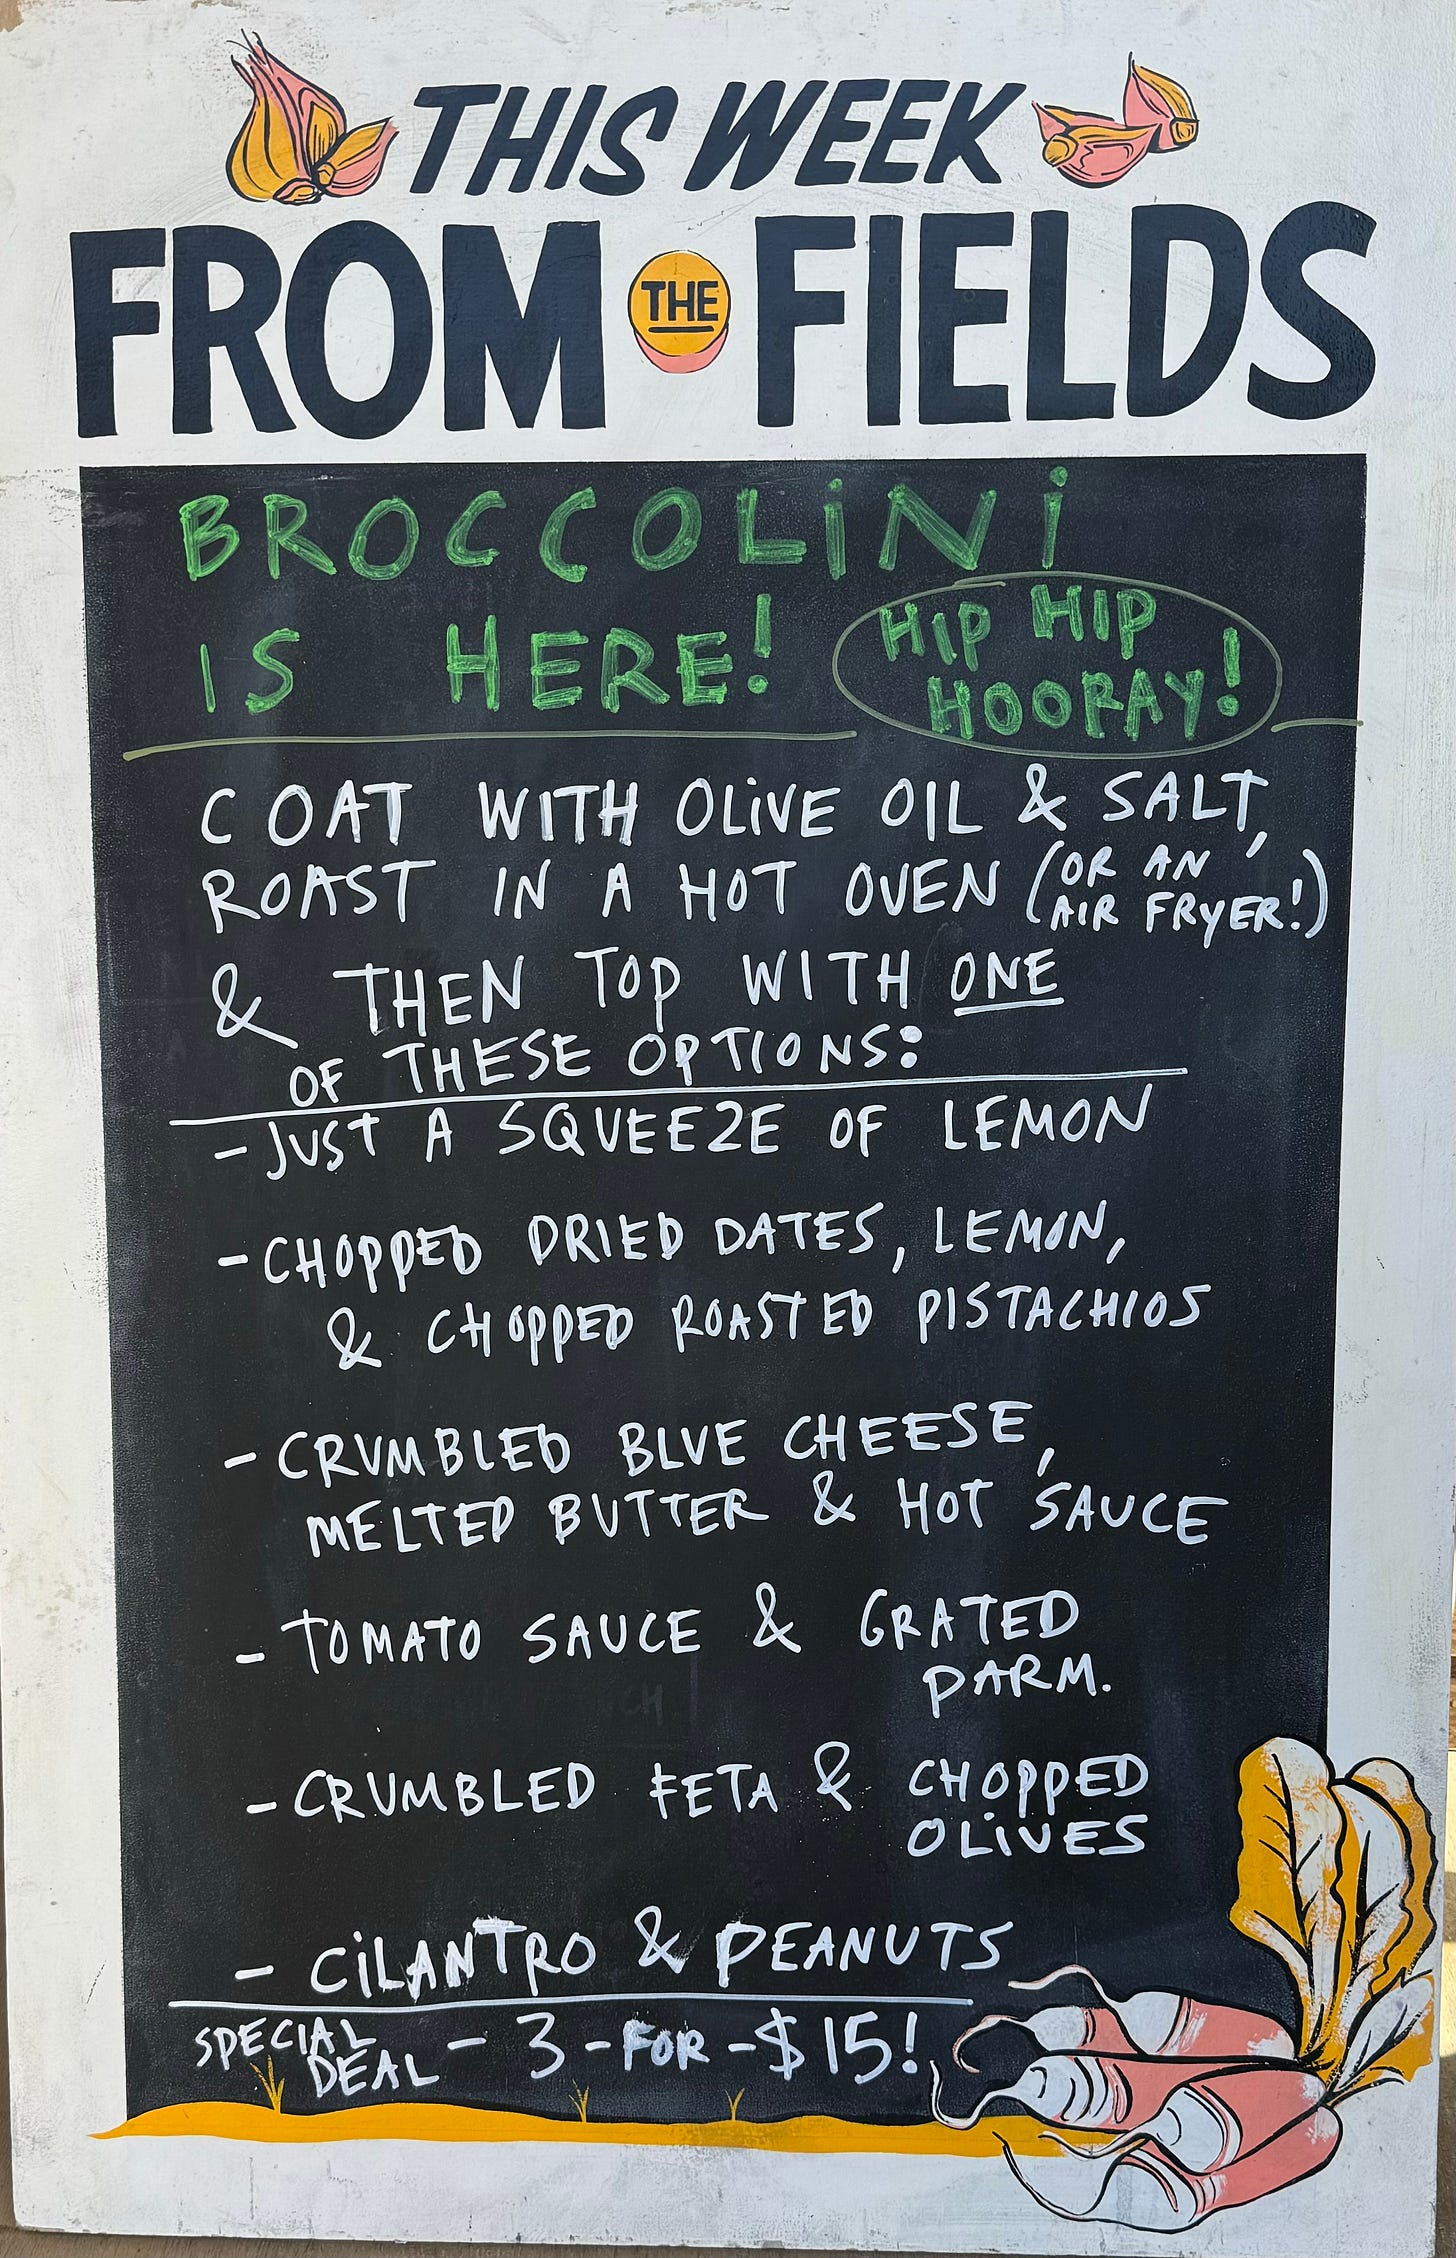 THIS WEEK
FROM THE FIELDS
BROCCOLiNi
IS HERE!
HIP HIP
HOORAY!
COAT WITH OLiVE OIL & SALT,
ROAST IN A HOT OVEN (OR AN
AIR FRYER!)
& THEN TOP WITH ONE
OF THESE OPTIONS:
- JUST A SQUEEZE OF LEMON
- CHOPPED DRIED DATES, LEMON,
& CHOPPED ROASTED PISTACHIOS
- CRUMBLED BLUE CHEESE,
MELTED BUTTER & HOT SAUCE
- TOMATO SAUCE & GRATED
PARM.
- CRUMBLED FETA & CHOPPED
OLiVES
- CiLANTRO & PEANUTS
SPECIAL
DEAL - 3 - FOR - $15!